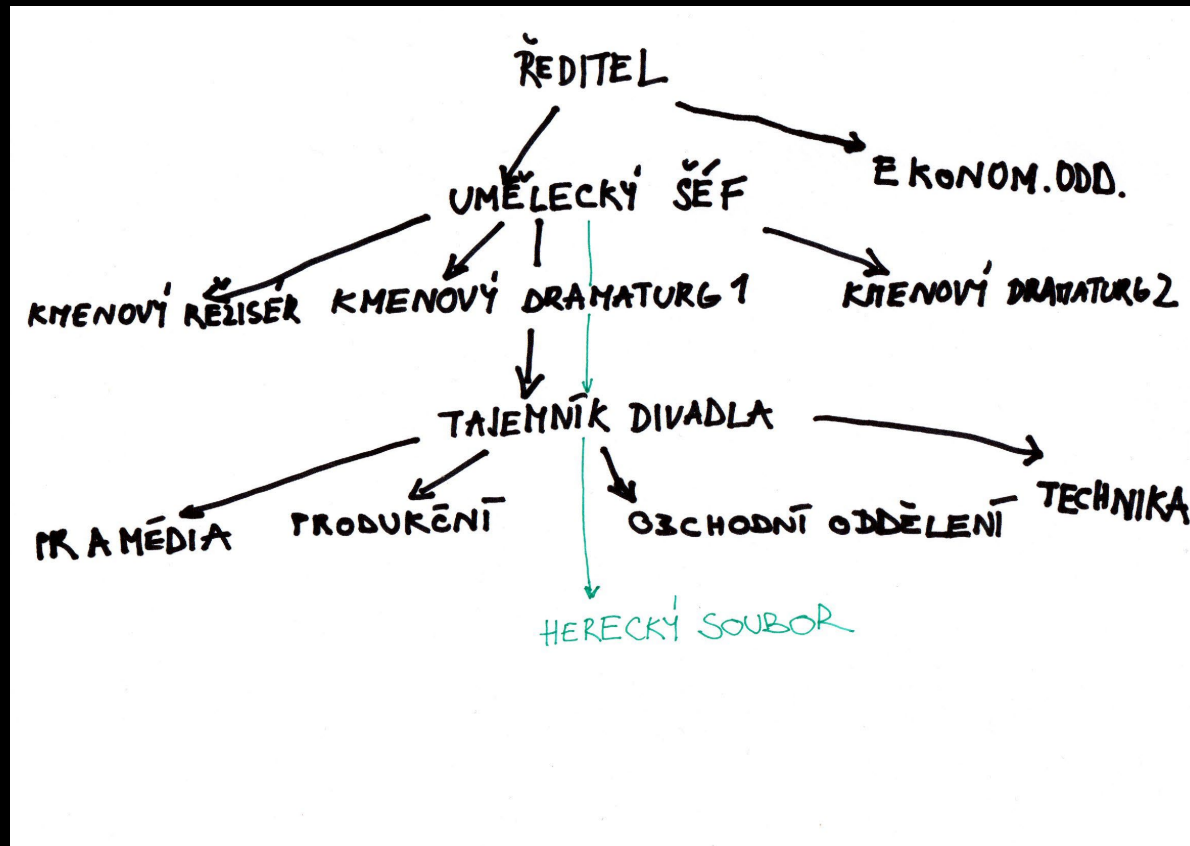 ŘEDITEL
EKONOM. ODD.
UMĚLECKÝ ŠÉF
KMENOVÝ REŽISÉR
KMENOVÝ DRAMATURG 1
KMENOVÝ DRAMATURG 2
TAJEMNÍK DIVADLA
PR A MÉDIA
PRODUKČNÍ
OBCHODNÍ ODDĚLENÍ
TECHNIKA
HERECKÝ SOUBOR